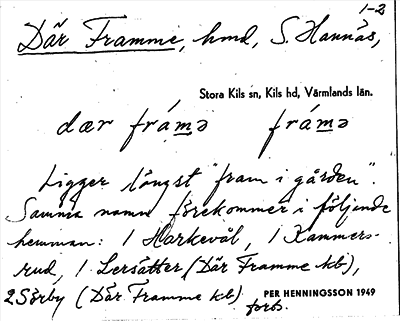 1-2
Där Framme, hmd, S. Hannäs,
Stora Kils sn, Kils hd, Värmlands län.
dær frámə frámə
Ligger längst "fram i gården".
Samma namn förekommer i följande
hemman: 1 Harkevål, 1 Kammers-
rud, 1 Lersätter (Där Framme kb),
2 Sörby (Där Framme kb)
PER HENNINGSSON 1949
forts.